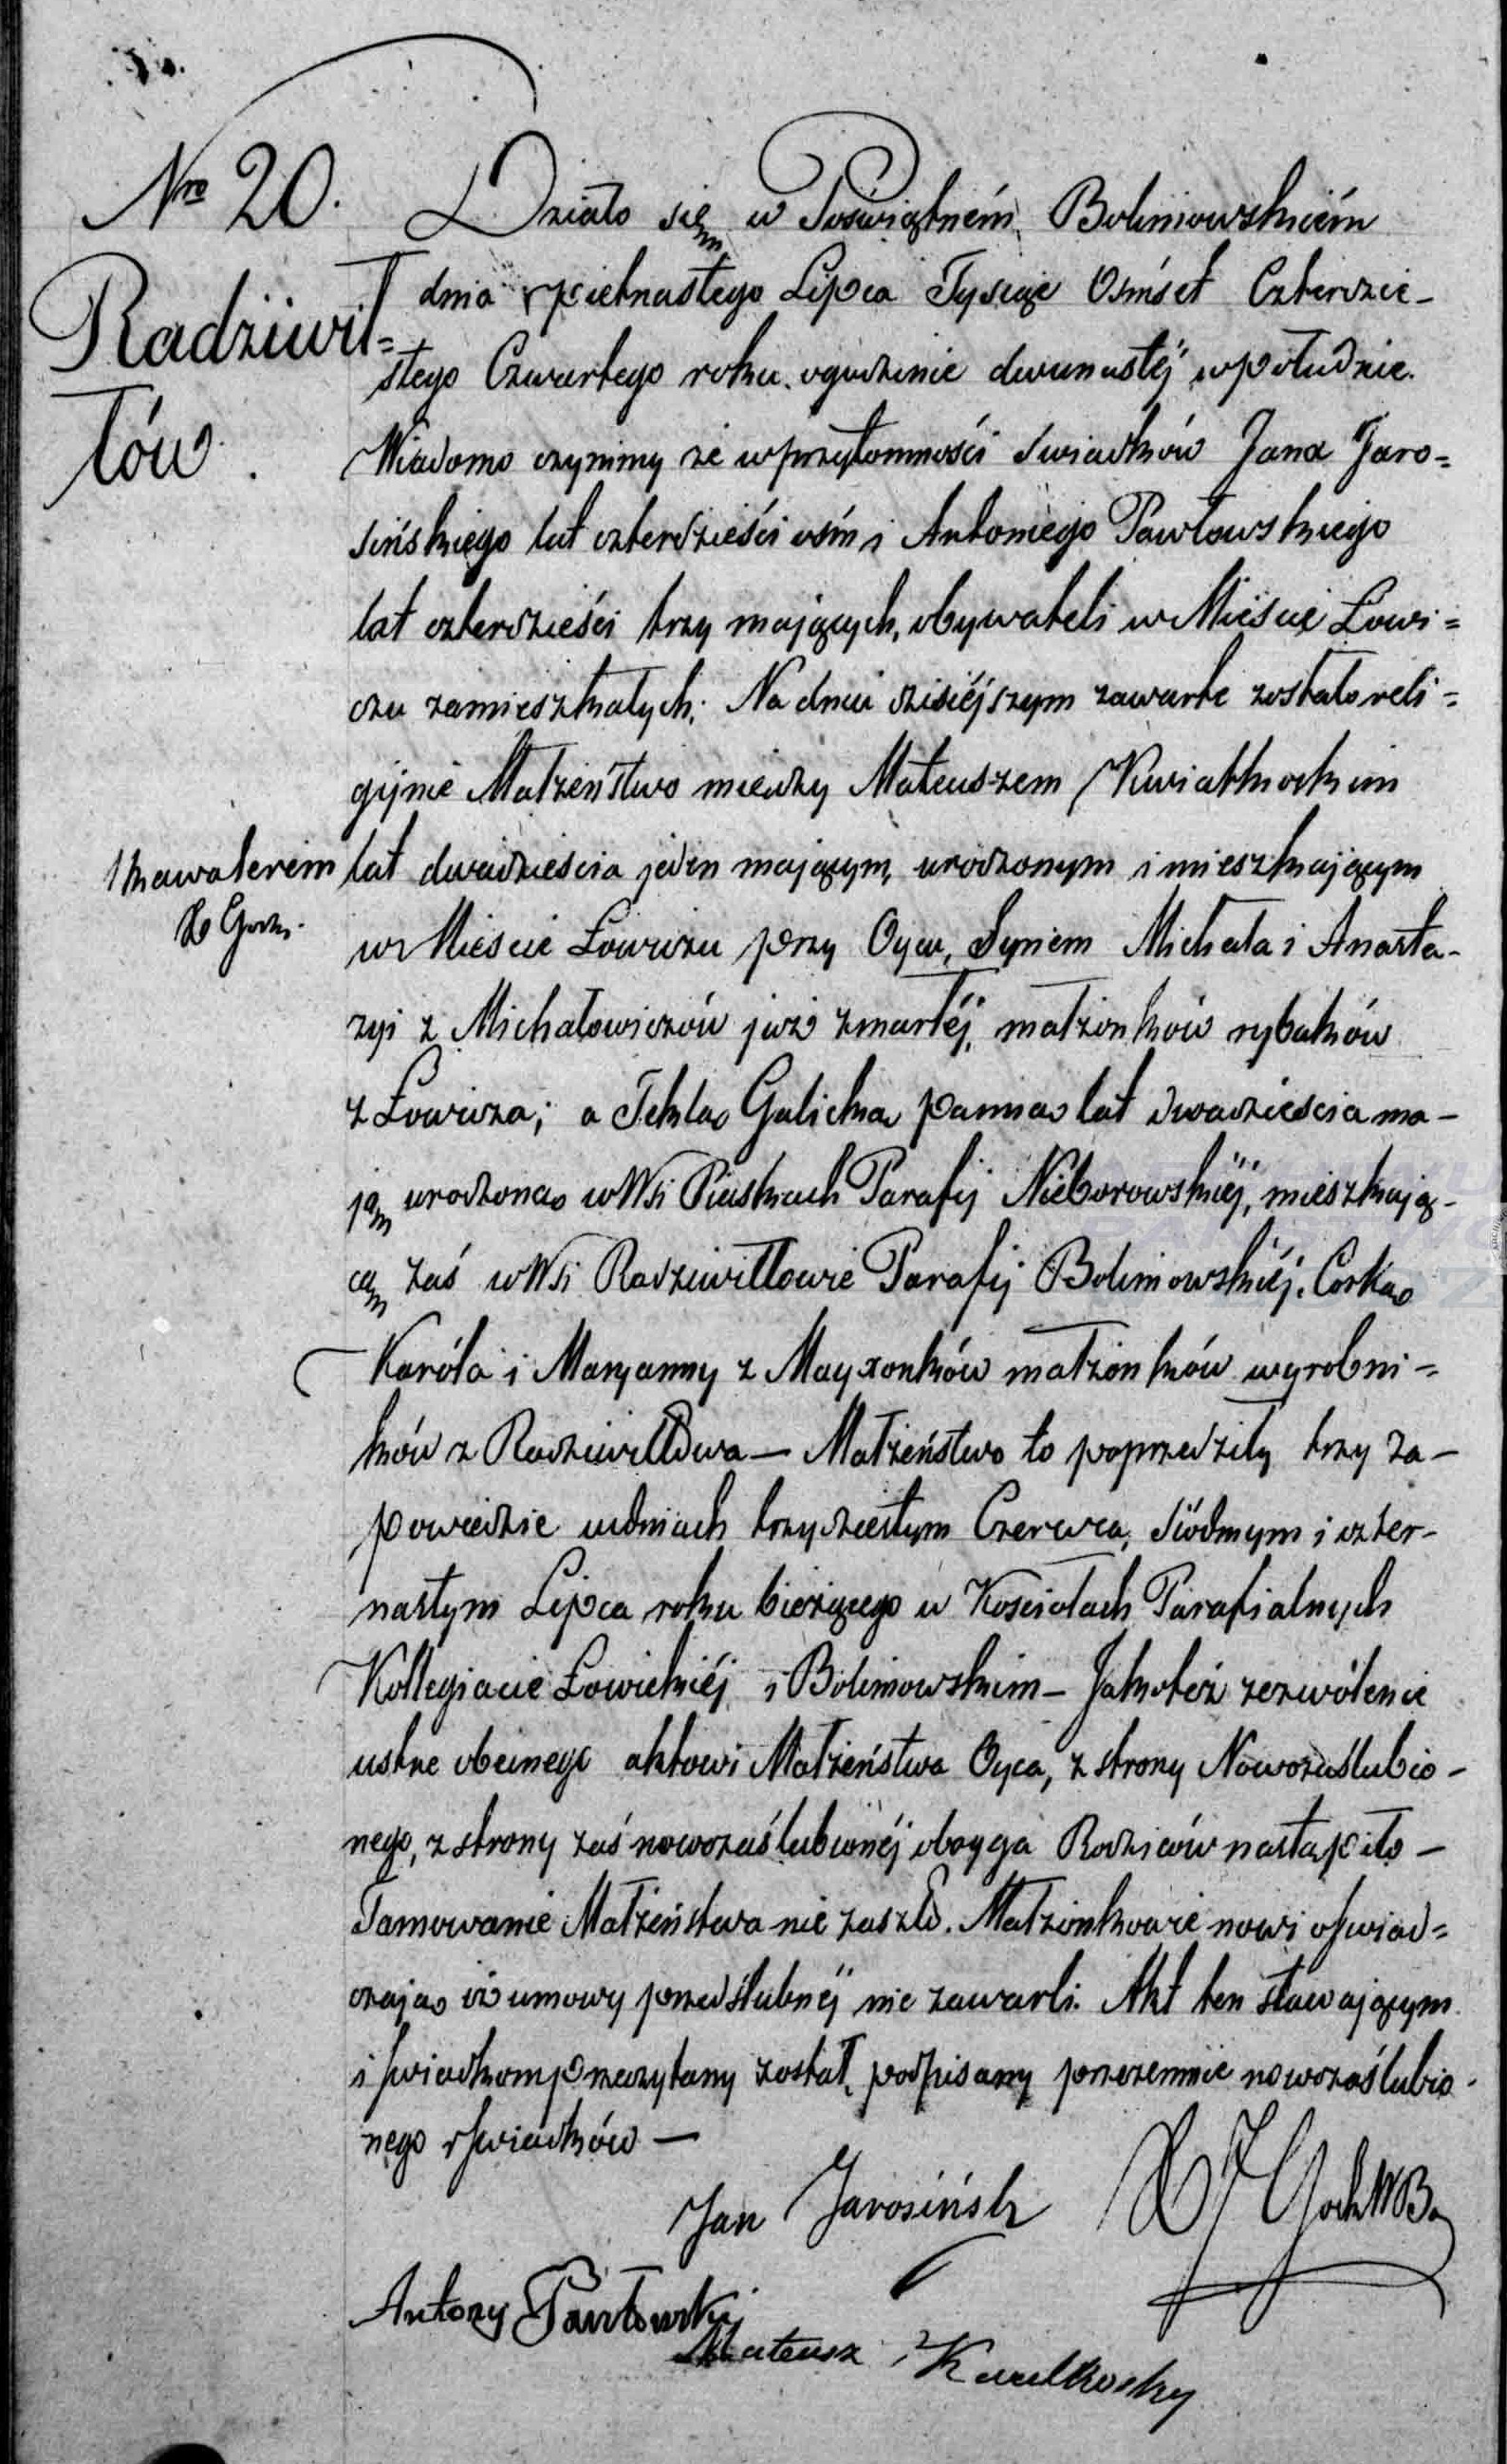 Nro 20.
Radziwił=
łów.
Działo się w Poświątném Bolimowskiém
dnia piętnastego Lipca Tysiąc Ośmset Czterdzie-
stego Czwartego roku. ogodzinie dwunastéj wpołudnie.
Wiadomo czynimy że wprzytomności Swiadków Jana Jaro=
sińskiego lat czterdzieści ośm i Antoniego Pawłowskiego
lat czterdzieści trzy mających, obywateli w Mieście Łowi=
czu zamieszkałych; Na dniu dzisiéjszym zawarte zostało reli=
gijne Małżeństwo między Mateuszem Kwiatkoskim
kawalerem
lat dwadzieścia jeden mającym, urodzonym i mieszkającym
w Mieście Łowiczu przy Oycu, Synem Michała i Anasta-
zyi z Michałowiczów już zmarłéj, małżonków rybaków
z Łowicza; a Teklą Galicką panną lat dwadzieścia ma-
ją urodzoną w Wsi Piaskach Parafij Nieborowskiéj, mieszkają-
cą zaś w Wsi Radziwiłłowie Parafij Bolimowskiéj. Corką
Karóla i Maryanny z małżonków wyrobni=
ków z Radziwiłłowa — Małżeństwo to poprzedziły trzy za-
powiedzie wdniach trzydziestym Czerwca, Siódmym i czter-
nastym Lipca roku bieżącego w Kościołach Parafialnych
Kollegiacie Łowickiéj i Bolimowskim — Jakoteż zezwólenie
ustne obecnego aktowi Małżeństwa Oyca, z strony Nowozaślubio-
nego, z strony zaś nowozaślubionéj oboyga Rodziców nastąpiło —
Tamowanie Małżeństwa nie zaszło. Małżonkowie nowi oświad=
czają iż umowy przedślubnéj nie zawarli. Akt ten stawającym
i świadkom przeczytany został, podpisany przezemnie nowozaślubio-
nego i świadków —
Jan Jarosińsk
Antony Pawłowski
Mateusz